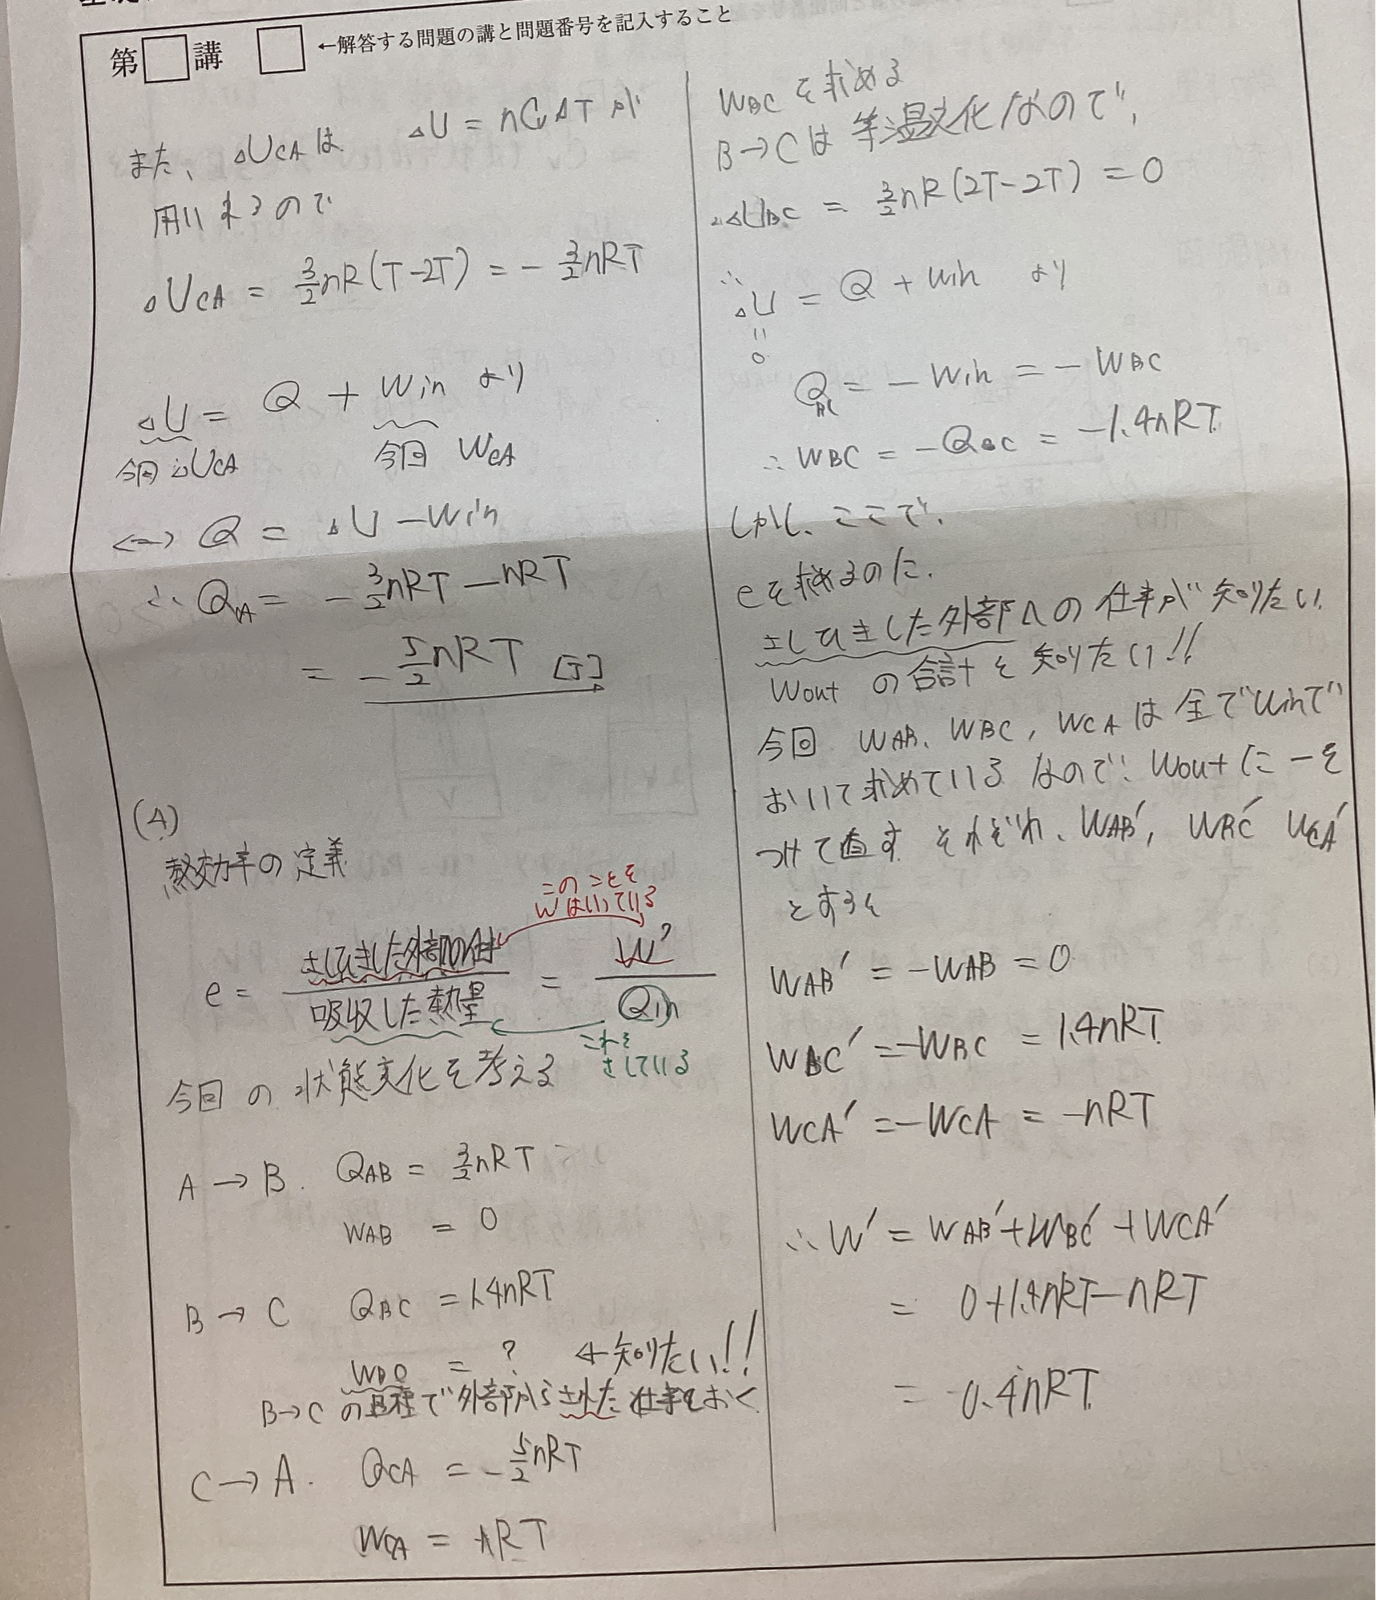 第 講 ←解答する問題の講と問題番号を記入すること
また、ΔUCAは ΔU = nCvΔT が
用いれるので
ΔUCA = 3/2nR(T-2T) = - 3/2nRT
ΔU = Q + Win より
今回ΔUCA 今回 WCA
⟷ Q = ΔU - Win
∴ QCA = - 3/2nRT - nRT
= - 5/2nRT [J]
(4)
熱効率の定義
このことを
Wはいっている
e = さしひきした外部への仕事/吸収した熱量 = W'/Qin
これを
さしている
今回の状態変化を考える
A → B. QAB = 3/2nRT
WAB = 0
B → C QBC = 1.4nRT
WBC = ? ← 知りたい!!
B→Cの過程で外部からされた仕事をおく
C → A. QCA = - 5/2nRT
WCA = nRT
WBCを求める
B→Cは等温変化なので、
∴ΔUBC = 3/2nR(2T-2T) = 0
∴ΔU = Q + Win より
=
0
QBC = - Win = - WBC
∴ WBC = -QBC = -1.4nRT
しかし、ここで、
eを求めるのに、
さしひきした外部への仕事が知りたい
Woutの合計を知りたい!!
今回 WAB、WBC, WCAは全てWinで
おいて求めているなので、Woutに-を
つけて直す それぞれ、WAB', WBC' WCA'
とすると
WAB' = -WAB = 0
WBC' = -WBC = 1.4nRT
WCA' = -WCA = -nRT
∴W' = WAB'+WBC'+WCA'
= 0+1.4nRT-nRT
= 0.4nRT